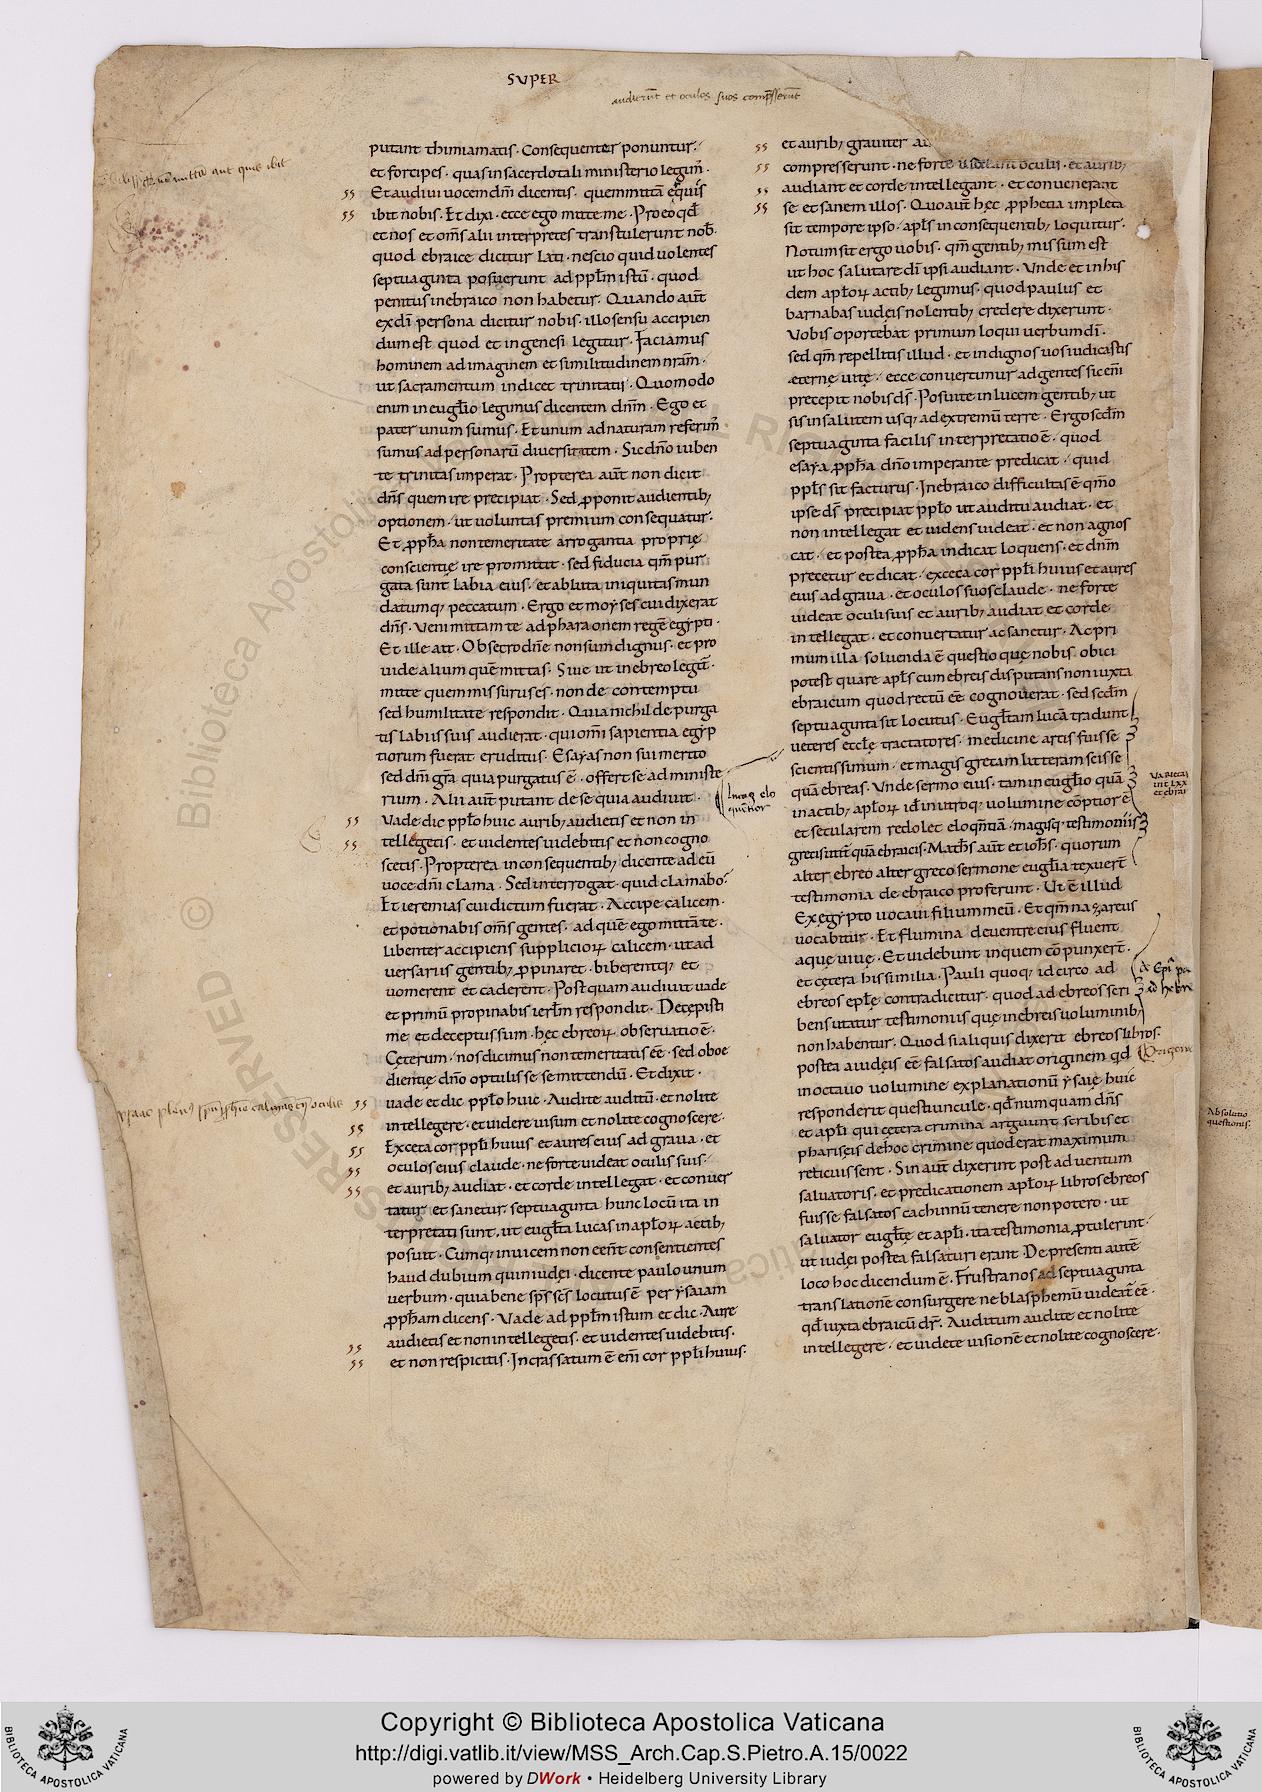 SUPER
audierūt et oculos suos comp̄sserūt
putant thimiamatis. Consequenter ponuntur.
et forcipes. quas in sacerdotali ministerio legim̄.
Et audivi vocem dn̄i dicentis. quem mittā et quis
ibit nobis. Et dixi. ecce ego mitte me. Pro eo qđ
et nos et om̄s alii interpretes transtulerunt nob̄.
quod ebraice dicitur Lati. nescio quid volentes
septuaginta posuerunt ad pplm̄ istū. quod
penitus in ebraico non habetur. Quando aūt
ex dī persona dicitur nobis. illo sensu accipien
dum est quod et in genesi legitur. Faciamus
hominem ad imaginem et similitudinem nr̄am.
ut sacramentum indicet trinitatis. Quomodo
enim in eugl̄io legimus dicentem dn̄m. Ego et
pater unum sumus. Et unum ad naturam referim̄
sumus ad personarū diversitatem. Sic dn̄o iuben
te trinitas imperat. Propterea aūt non dicit
dn̄s quem ire precipiat. Sed ꝓponit audientib;
optionem. ut voluntas premium consequatur.
Et ꝓph̄a non temeritate arrogantia proprię
conscientię ire promittit. sed fiducia qm̄ pur
gata sunt labia eius. et ablata iniquitas mun
datumq; peccatum. Ergo et moyses cui dixerat
dn̄s. Veni mittam te ad pharaonem regē egypti.
Et ille ait. Obsecro dn̄e non sum dignus. et pro
vide alium quē mittas. Sive ut in ebreo legit̄.
mitte quem missurus es. non de contemptu
sed humilitate respondit. Qui a nichil de purga
tis labiis suis audierat. qui om̄i sapientia egyp
tiorum fuerat eruditus. Esayas non sui merito
sed dn̄i gr̄a quia purgatus ē. offert se ad ministe
rium. Alii aūt putant de se quia audivit.
Vade dic pplo huic aurib; audietis et non in
tellegetis. et videntes videbitis et non cogno
scetis. Propterea in consequentib; dicente ad eū
voce dn̄i clama. Sed interrogat. quid clamabo?
Et ieremias cui dictum fuerat. Accipe calicem.
et potionabis om̄s gentes. ad quē ego mittā te.
libenter accipiens supplicioꝝ calicem. ut ad
versarius gentib; ꝓpinaret. biberentq; et
vomerent et caderent. Postquam audivit vade
et primū propinabis ierlm̄ respondit. Decepisti
me et deceptus sum. hęc ebreoꝝ observatio ē.
Cęterum. nos dicimus non temeritatis eē. sed oboe
dientię dn̄o optulisse se mittendū. Et dixit.
vade et dic pplo huic. Audite auditū et nolite
intellegere. et videre visum et nolite cognoscere.
Exceca cor ppli huius et aures eius ad grava. et
oculos eius claude. ne forte videat oculis suis.
et aurib; audiat. et corde intellegat. et conver
tatur et sanetur. septuaginta hunc locū ita in
terpretati sunt. ut eugl̄ta lucas in aploꝝ actib;
posuit. Cumq; invicem non eent̄ consentientes
haud dubium quin iudęi. dicente paulo unum
verbum. quia bene sp̄s sc̄s locutus ē per ysaiam
ꝓph̄am dicens. Vade ad pplm̄ istum et dic. Aure
audietis et non intellegetis. et videntes videbitis.
et non respicitis. Incrassatum ē em̄ cor ppli huius.
et aurib; graviter
compresserunt. ne forte videant oculis. et aurib;
audiant et corde intellegant. et convenerant
se et sanem illos. Quo aūt hęc ꝓphetia impleta
sit tempore ipso. apl̄s in consequentib; loquitur.
Notum sit ergo vobis. qm̄ gentib; missum est
ut hoc salutare dī ipsi audiant. Unde et in his
dem aploꝝ actib; legimus. quod paulus et
barnabas iudęis nolentib; credere dixerunt.
Vobis oportebat primum loqui verbum dī.
sed qm̄ repellitis illud. et indignos vos iudicastis
ęternę vitę. ecce convertimur ad gentes sic em̄
precepit nobis ds̄. Posui te in lucem gentib; ut
sis in salutem usq; ad extremū terre. Ergo scdm̄
septuaginta facilis interpretatio ē. quod
esaya ꝓph̄a dn̄o imperante predicat. quid
ppl̄s sit facturus. In ebraico difficultas ē qm̄o
ipse ds̄ precipiat pplo ut auditu audiat. et
non intellegat et videns videat. et non agnos
cat. et postea ꝓph̄a indicat loquens. et dn̄m
precetur et dicat. exceca cor ppli huius et aures
eius ad grava. et oculos suos claude. ne forte
videat oculis suis et aurib; audiat et corde
intellegat. et convertatur ac sanetur. Ac pri
mum illa solvenda ē questio quę nobis obici
potest quare apl̄s cum ebreis disputans non iuxta
ebraicum quod rectū eē cognoverat. sed scdm̄
septuaginta sit locutus. Eugl̄tam lucā tradunt
veteres eccl̄ę tractatores. medicine artis fuisse
scientissimum. et magis grecam litteram scisse
quā ebreas. Unde sermo eius. tam in eugl̄io quā
in actib; aploꝝ id ē in utroq; volumine cōptior ē
et secularem redolet eloqn̄tiā. magisq; testimoniis
grecis utit̄ quā ebraicis. Math̄s aūt et ioh̄s. quorum
alter ebreo alter greco sermone eugl̄ia texuer̄t
testimonia de ebraico proferunt. Ut ē illud
Ex egypto vocavi filium meū. Et qm̄ nazareus
vocabitur. Et flumina de ventre eius fluent
aquę vivę. Et videbunt in quem cōpunxer̄t.
et cętera his similia. Pauli quoq; idcirco ad
ebreos eplę contradicitur. quod ad ebreos scri
bens utatur testimoniis quę in ebreis voluminib;
non habentur. Quod si aliquis dixerit ebreos libros.
postea a iudęis eē falsatos audiat originem qđ
in octavo volumine explanationū ysaię huic
responderit questiuncule. qđ numquam dn̄s
et apli qui cętera crimina arguunt scribis et
phariseis de hoc crimine quod erat maximum
reticuissent. Sin aūt dixerint post adventum
salvatoris. et predicationem aploꝝ libros ebreos
fuisse falsatos cachinnū tenere non potero. ut
salvator eugl̄tę et apli. ita testimonia ꝓtulerint.
ut iudęi postea falsaturi erant. De presenti autē
loco hoc dicendum ē. Frustra nos ad septuaginta
translationē consurgere ne blasphemū videat̄ eē.
qđ iuxta ebraicū dr̄. Auditum audite et nolite
intellegere. et videte visionē et nolite cognoscere.
Lucas elo
quentior
VARIETAS
int LXX
et ebrai
Origene
Absolutio
questionis.
Copyright © Biblioteca Apostolica Vaticana
http://digi.vatlib.it/view/MSS_Arch.Cap.S.Pietro.A.15/0022
powered by DWork • Heidelberg University Library
BIBLIOTECA APOSTOLICA VATICANA
BIBLIOTECA APOSTOLICA VATICANA